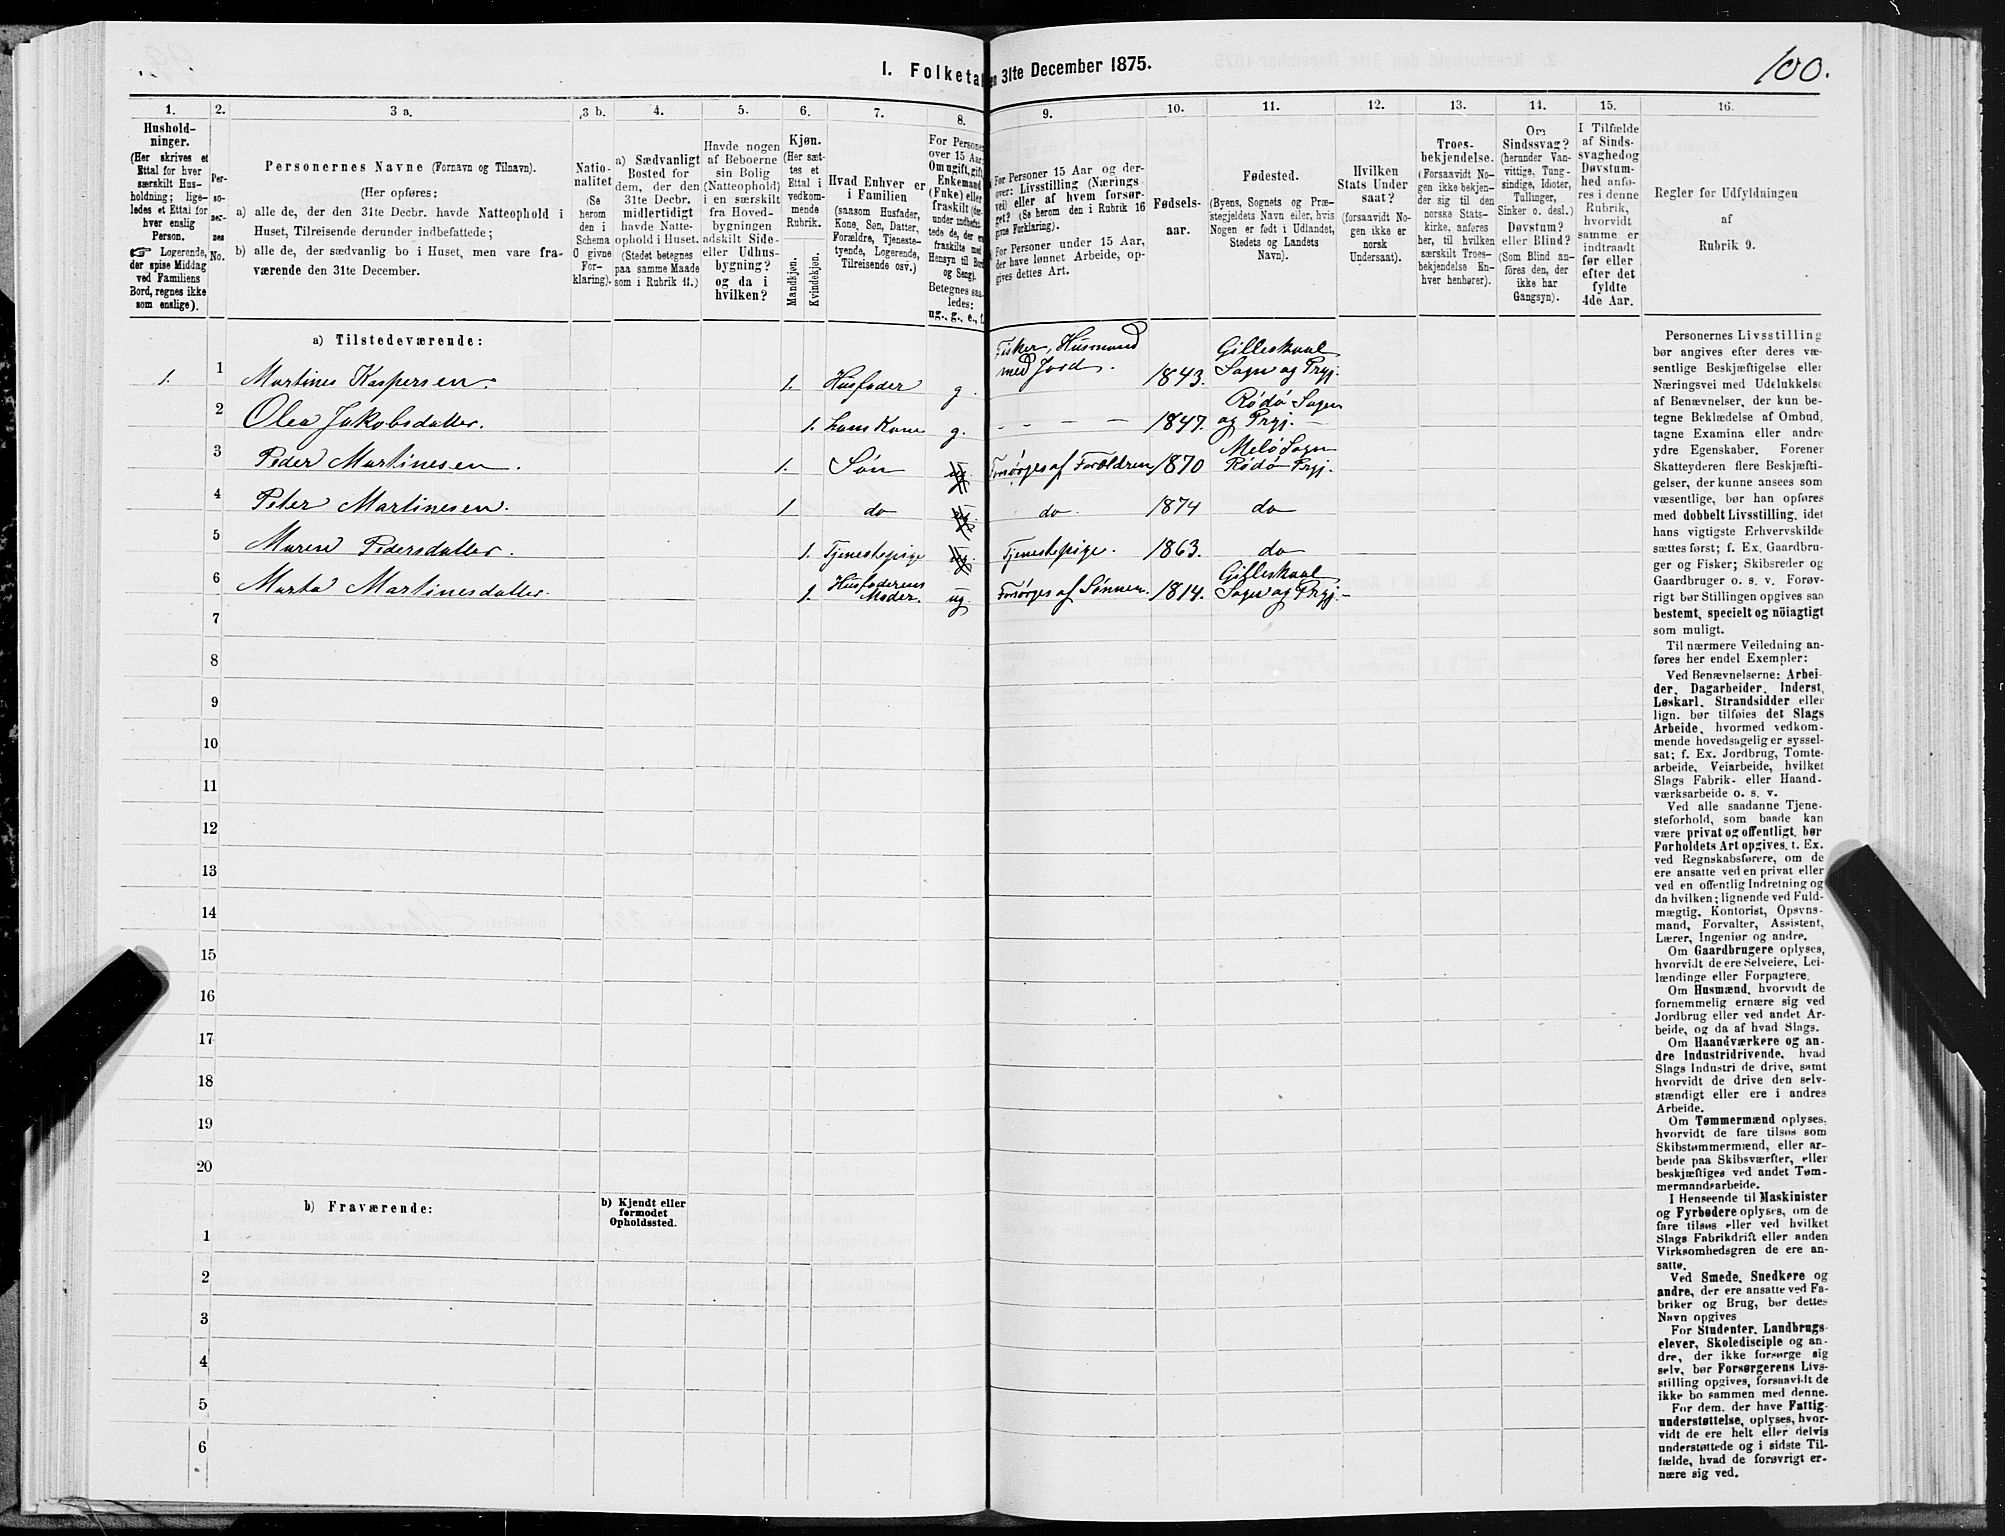 I. Folketa
en 31te December 1875.
100.
1.
2.
3 a.
3 b.
4.
5.
6.
7.
8.
9.
10.
11.
12.
13.
14.
15.
16.
Hushold-
ninger.
(Her skrives et
Ettal for hver
særskilt Hus-
holdning; lige-
ledes et Ettal for
hver enslig
Person.
☞ Logerende,
der spise Middag
ved Familiens
Bord, regnes ikke
som enslige).
Per-
so-
ner-
nes
No.
Personernes Navne (Fornavn og Tilnavn).
(Her opføres:
a) alle de, der den 31te Decbr. havde Natteophold i
Huset, Tilreisende derunder indbefattede;
b) alle de, der sædvanlig bo i Huset, men vare fra-
værende den 31te December.
Natio-
nalitet
(Se
herom
den i
Schema
O givne
For-
klaring).
a) Sædvanligt
Bosted for
dem, der den
31te Decbr.
midlertidigt
havde Natte-
ophold i Huset.
(Stedet betegnes
paa samme Maade
som i Rubrik 11.)
Havde nogen
af Beboerne
sin Bolig
(Natteophold)
i en særskilt
fra Hoved-
bygningen
adskilt Side-
eller Udhus-
bygning?
og da i
hvilken?
Kjøn.
(Her sæt-
tes et
Ettal i
vedkom-
mende
Rubrik.
Mandkjøn.
Kvindekjøn.
Hvad Enhver er
i Familien
(saasom Husfader,
Kone, Søn, Datter,
Forældre, Tjeneste-
tyende, Logerende,
Tilreisende osv.)
For Persone
over 15 Aar:
Om ugift, gift,
Enkemand
(Enke) eller
fraskilt (der-
under indbefat-
tede de, der ere
fraskilte med
Hensyn til Bord
og Seng).
Betegnes saa-
ledes:
ug., g., e., f.
For Personer 15 Aar og der-
over: Livsstilling (Nærings
vei) eller af hvem forsør-
get? (Se herom den i Rubrik 16
givne Forklaring).
For Personer under 15 Aar,
der have lønnet Arbeide, op-
gives dettes Art.
Fødsels-
aar.
Fødested.
(Byens, Sognets og Præ-
stegjeldets Navn eller, hvis
Nogen er født i Udlandet,
Stedets og Landets
Navn).
Hvilken
Stats Under
saat?
(forsaavidt No-
gen ikke er
norsk
Undersaat).
Troes-
bekjendelse.
(Forsaavidt No-
gen ikke bekjen-
der sig til den
norske Stats-
kirke, anføres
her, til hvilken
særskilt Troes-
bekjendelse En-
hver henhører).
Om
Sindssvag?
(herunder Van-
vittige, Tung-
sindige, Idioter,
Tullinger,
Sinker o. desl.)
Døvstum?
eller Blind?
(Som Blind an-
føres den, der
ikke har
Gangsyn).
I Tilfælde
af Sinds-
svaghed og
Døvstum-
hed anfø-
res i denne
Rubrik,
hvorvidt
samme er
indtraadt
før eller
efter det
fyldte
4de Aar.
Regler for Udfyldningen
af
Rubrik 9.
a) Tilstedeværende:
1. 1 Martines Kaspersen. 1. Husfader g. Fisker, Husmand med Jord. 1843. Gilleskaal Sogn og Prgj.
2 Olea Jakobsdatter. 1. hans Kone g. - - - - 1847. Rødø Sogn og Prgj. -
3 Peder Martinesen. 1. Søn ug. Forsørges af Forældren 1870 Melø Sogn Rødø Prgj.
4 Peter Martinesen. 1 do ug. do. 1874 do
5 Maren Pedersdatter. 1. Tjenestepige ug. Tjenestepige. 1863. do
6 Marta Martinesdatter. 1. Husfaderens Moder. ug Forsørges af Sønnen. 1814. Gilleskaal Sogn og Prgj. -
7
8
9
10
11
12
13
14
15
16
17
18
19
20
b) Fraværende:
b) Kjendt eller
formodet
Opholdssted.
1
2
3
4
5
6
Personernes Livsstilling
bør angives efter deres væ-
sentlige Beskjæftigelse eller
Næringsvei med Udelukkelse
af Benævnelser, der kun be-
tegne Beklædelse af Ombud,
tagne Examina eller andre
ydre Egenskaber. Forener
Skatteyderen flere Beskjæfti-
gelser, der kunne ansees som
væsentlige, bør han opføres
med dobbelt Livsstilling, idet
hans vigtigste Erhvervskilde
sættes først; f. Ex. Gaardbru-
ger og Fisker; Skibsreder og
Gaardbruger o. s. v. Forøv-
rigt bør Stillingen opgives saa
bestemt, specielt og nöiagtigt
som muligt.
Til nærmere Veiledning an-
føres her endel Exempler:
Ved Benævnelserne: Arbei-
der, Dagarbeider, Inderst,
Løskarl, Strandsidder eller
lign. bør tilføies det Slags
Arbeide, hvormed vedkom-
mende hovedsagelig er syssel-
sat; f. Ex. Jordbrug, Tomte-
arbeide, Veiarbeide, hvilket
Slags Fabrik- eller Haand-
værksarbeide o. s. v.
Ved alle saadanne Tjene-
steforhold, som baade kan
være privat og offentligt, bør
Forholdets Art opgives, f. Ex.
ved Regnskabsførere, om de
ere ansatte ved en privat eller
ved en offentlig Indretning og
da hvilken; lignende ved Fuld-
mægtig, Kontorist, Opsyns-
mand, Forvalter, Assistent,
Lærer, Ingeniør og andre.
Om Gaardbrugere oplyses,
hvorvidt de ere Selveiere, Lei-
lændinge eller Forpagtere.
Om Husmænd, hvorvidt de
fornemmelig ernære sig ved
Jordbrug eller ved andet Ar-
beide, og da af hvad Slags.
Om Haandværkere og an-
dre Industridrivende, hvad
Slags Industri de drive, samt
hvorvidt de drive den selv-
stændigt eller ere i andres
Arbeide.
Om Tømmermænd oplyses,
hvorvidt de fare tilsøs som
Skibstømmermænd, eller ar-
beide paa Skibsværfter, eller
beskjæftiges ved andet Tøm-
mermandsarbeide.
I Henseende til Maskinister
og Fyrbødere oplyses, om de
fare tilsøs eller ved hvilket
Slags Fabrikdrift eller anden
Virksomhedsgren de ere an-
satte.
Ved Smede, Snedkere og
andre, der ere ansatte ved Fa-
briker og Brug, bør dettes
Navn opgives
For Studenter, Landbrugs-
elever, Skoledisciple og an-
dre, der ikke forsørge sig
selv, bør Forsørgerens Livs-
stilling opgives, forsaavidt de
ikke bo sammen med denne.
For dem, der have Fattig-
understøttelse, oplyses, hvor-
vidt de ere helt eller delvis
understøttede og i sidste Til-
fælde, hvad de forøvrigt er-
nære sig ved.